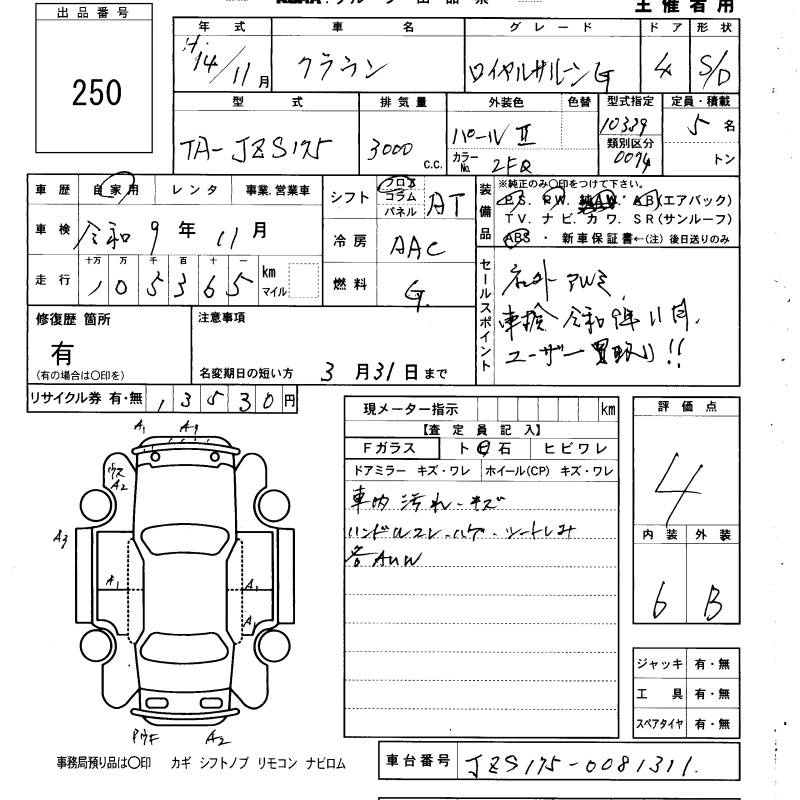 主催者用
出品番号
250
年式 車名 グレード ドア 形状
H14/11月 クラウン ロイヤルサルーンG 4 S/D
型式 排気量 外装色 色替 型式指定 定員・積載
TA-JZS175 3000 c.c. パールⅡ 10339 5名
カラーNo. 2FQ 類別区分 0074 トン
車歴 自家用 レンタ 事業.営業車
車検 令和9年11月
走行 十万 万 千 百 十 一
105365 km マイル
シフト フロア コラム パネル AT
冷房 AAC
燃料 G
装備品 ※純正のみ〇印をつけて下さい。
P.S. P.W. AW. AB(エアバック)
TV. ナビ. カワ. SR(サンルーフ)
ABS ・ 新車保証書←(注) 後日送りのみ
セールスポイント
社外AW
車検令和9年11月.
ユーザー買取り!!
修復歴 箇所
有
(有の場合は〇印を)
注意事項
名変期日の短い方 3月31日まで
リサイクル券 有・無 13530円
現メーター指示 km
【査定員記入】
Fガラス ト 石 ヒビワレ
ドアミラー キズ・ワレ ホイール(CP) キズ・ワレ
車内汚れ・キズ
ハンドルスレ・ハゲ・シートしみ
各AUW
評価点
4
内装 外装
6 B
ジャッキ 有・無
工具 有・無
スペアタイヤ 有・無
A1 A3
ウス
A2
A3
A1 A1
A1
A2
事務局預り品は〇印 カギ シフトノブ リモコン ナビロム
車台番号 JZS175-0081311.